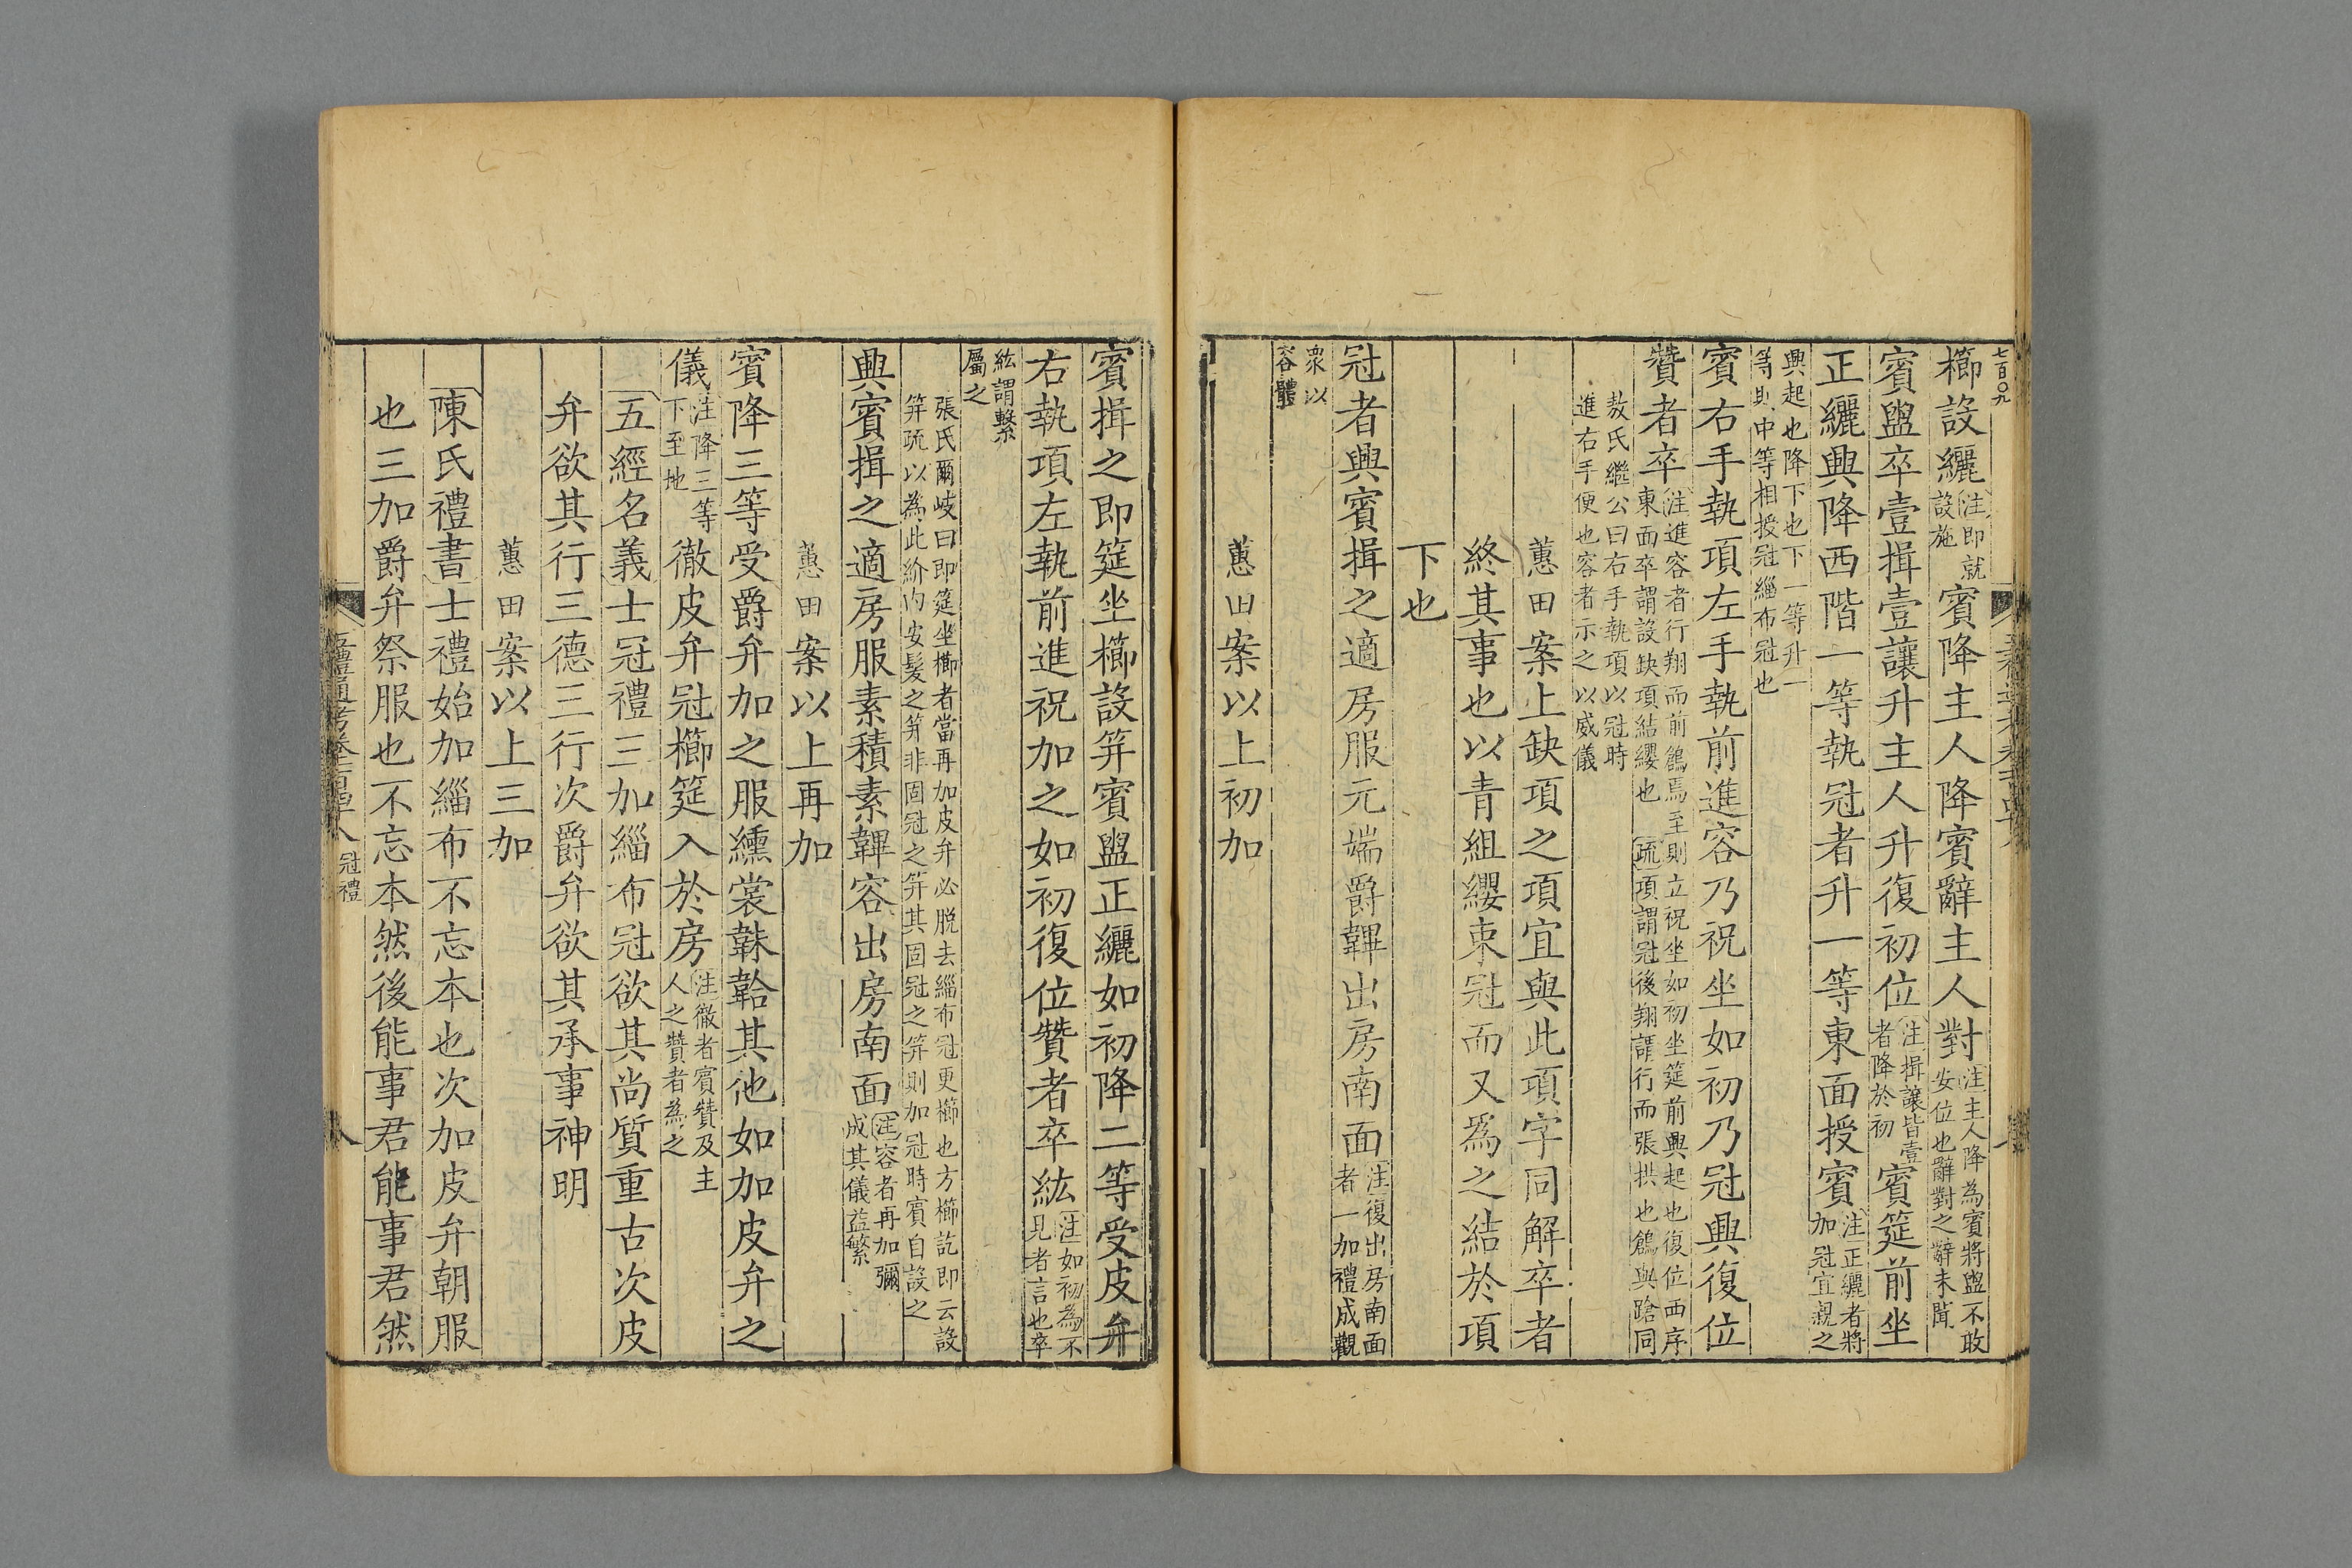 七百〇九
櫛設纚注即就設施賓降主人降賓辭主人對注主人降為賓將盥不敢安位也辭對之辭未聞
賓盥卒壹揖壹讓升主人升復初位注揖讓皆壹者降於初賓筵前坐
正纚興降西階一等執冠者升一等東面授賓注正纚者將加冠宜親之
興起也降下也下一等升一等則中等相授冠緇布冠也
賓右手執項左手執前進容乃祝坐如初乃冠興復位
贊者卒注進容者行翔而前鶬焉至則立祝坐如初坐筵前興起也復位西序東面卒謂設缺項結纓也疏項謂冠後翔謂行而張拱也鶬與蹌同
敖氏繼公曰右手執項以冠時進右手便也容者示之以威儀
蕙田案上缺項之項宜與此項字同解卒者
終其事也以青組纓束冠而又為之結於項
下也
冠者興賓揖之適房服元端爵韠出房南面注復出房南面者一加禮成觀
衆以容體
蕙田案以上初加
賓揖之即筵坐櫛設笄賓盥正纚如初降二等受皮弁
右執項左執前進祝加之如初復位贊者卒紘注如初為不見者言也卒
紘謂繫屬之
張氏爾岐曰即筵坐櫛者當再加皮弁必脱去緇布冠更櫛也方櫛訖即云設笄疏以為此紒內安髮之笄非固冠之笄其固冠之笄則加冠時賓自設之
興賓揖之適房服素積素韠容出房南面注容者再加彌成其儀益繁
蕙田案以上再加
賓降三等受爵弁加之服纁裳韎韐其他如加皮弁之
儀注降三等下至地徹皮弁冠櫛筵入於房注徹者賓贊及主人之贊者為之
五經名義士冠禮三加緇布冠欲其尚質重古次皮
弁欲其行三德三行次爵弁欲其承事神明
蕙田案以上三加
陳氏禮書士禮始加緇布不忘本也次加皮弁朝服
也三加爵弁祭服也不忘本然後能事君能事君然
五禮通考卷一百四十八 冠禮
八